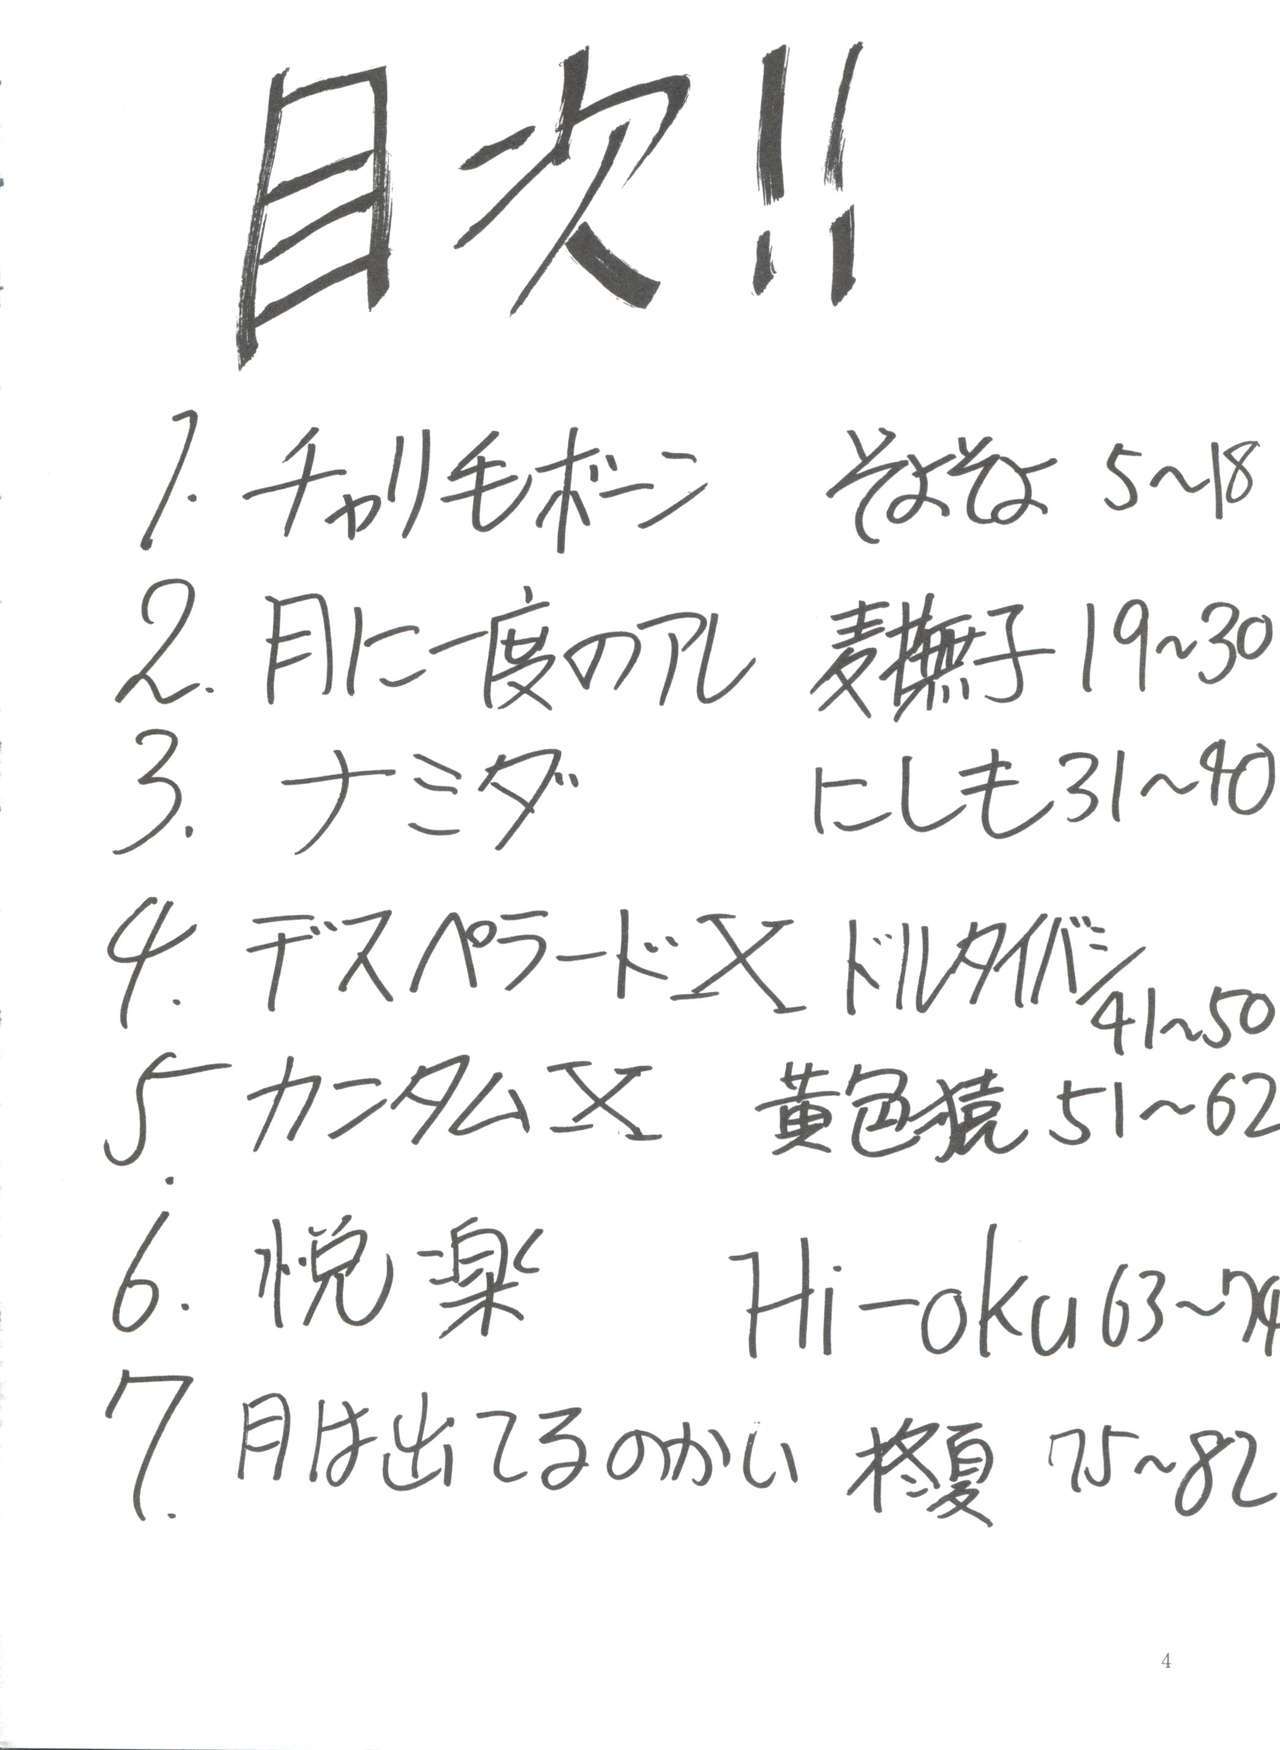 目次!!
1. チャリ毛ボーン そよそよ 5~18
2. 月に一度のアレ 麦撫子 19~30
3. ナミダ にしも 31~40
4. デスペラードX ドルタイバン 41~50
5. カンタムX 黄色猿 51~62
6. 悦楽 Hi-oku 63~74
7. 月は出てるのかい 柊夏 75~82
4